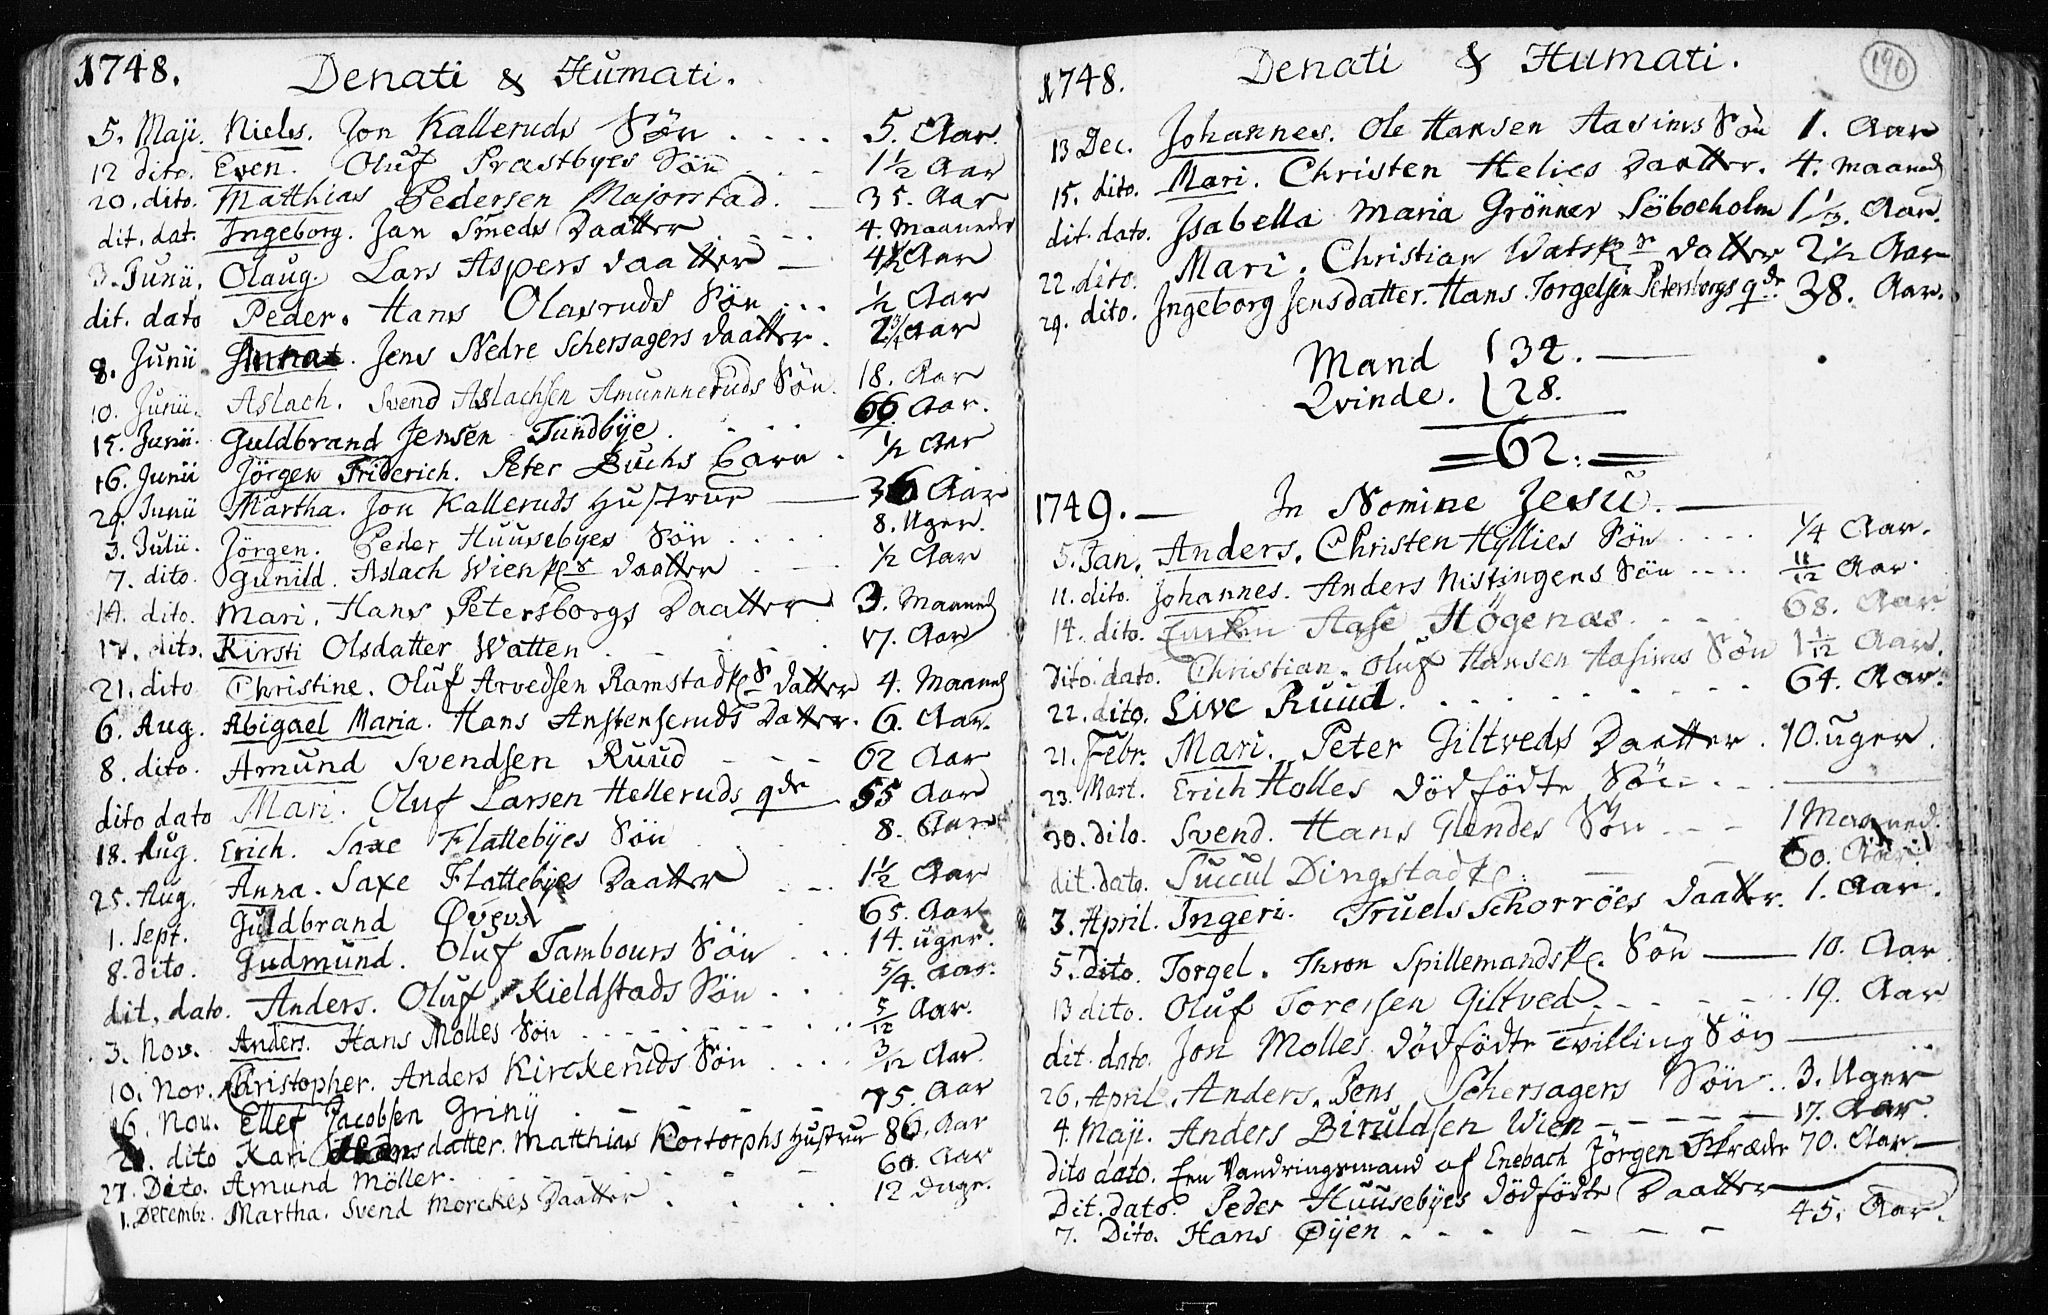 1748. Denati & Humati.
5. Maji. Niels. Jon Kalleruds Søn . . . . 5. Aar.
12 dito. Even. Oluf Prastbyes Søn . . . 1½ Aar
20. dito. Matthias Pedersen Majorstad. — 35. Aar
dit. dat. Ingeborg. Jan Smeds Daatter . . . . 4. Maaneder
3. Junii. Olaug. Lars Aspers Daatter — 4½ Aar
dit. dato Peder. Hans Olasruds Søn . . . ½ Aar
8. Junii Jens Nedre Schersagers Daatter. 2¾ Aar
10. Junii. Aslach. Svend Aslachsen Amunneruds Søn. 18. Aar
15. Junii. Guldbrand Jensen Tundbÿe . . . . 66 Aar.
16. Junii Jörgen Friderich. Peter Buchs Barn . ½ Aar
29. Junii Martha. Jon Kalleruds Hustrue — 36 Aar
3. Julii. Jörgen. Peder Huusebyes Søn . . . . 8. Uger.
7. dito. Gunild. Aslach Wienpl Daatter . . . ½ Aar
14. dito. Mari. Hans Petersborgs Daatter. 3. Maaned
17. dito. Kirsti Olsdatter Watten . - - - . 17. Aar
21. dito Christine. Oluf Arvedsen Ramstadpl Datter 4. Maaned
6. Aug. Abigael Maria. Hans Anstenseruds Datter. 6. Aar.
8. dito. Amund Svendsen Ruud - - - 62 Aar
dito dato Mari. Oluf Larsen Helleruds qde 55 Aar
18. Aug. Erich. Saxe Flattebÿes Søn . . . 8. Aar
25. Aug. Anna. Saxe Flattebÿes Daatter . . . 1½ Aar
1. Sept. Guldbrand . . 65. Aar
8. dito. Gudmund. Oluf Tambours Søn . . . 14. uger.
dit. dato. Anders. Oluf Kieldstads Søn . . . 5/4. Aar.
3. Nov. Anders. Hans Molles Søn - - - - - - . . 5/12 Aar.
10. Nov. Christopher. Anders Kirckeruds Søn . . . 3/12 Aar.
16. Nov. Ellef Jacobsen Grinÿ . - - - - - 75. Aar
dito Kari datter. Matthias Kortorphs Hustrue 86. Aar
27. Dito. Amund Möller. . - - - - - 60. Aar
1. Decembr. Martha. Svend Morckes Daatter . . . . 12 Dage.
190
1748. Denati & Humati.
13 Dec. Johannes. Ole Hansen Aasims Søn 1. Aar
15. dito. Mari. Christen Helies Daatter. 4. maaned
dit. dato. Isabella Maria Grönner Söboeholm 1⅓. Aar.
22. dito. Mari. Christian Watspl datter 2½ Aar
29. dito. Ingeborg Jensdatter. Hans Torgelsen Petersborgs qde 38. Aar.
Mand 34. —
Qvinde. 28.
= 62. =
1749. — In Nomine Jesu. —
5. Jan. Anders. Christen Hÿllies Søn . . . . ¼ Aar.
11. dito. Johannes. Anders Nistingens Søn . . . . 11/12 Aar.
14. dito. Aase Högenas . - - - 68. Aar.
Dito dato. Christian. Oluf Hansen Aasims Søn 1 1/12 Aar.
22. dito. Live Ruud. . . . . . . . . 64. Aar.
21. Febr. Mari. Peter Giltveds Daatter. 10. uger.
23. Mart. Erich Holles dödfödte Søn . . —
30. dito. Svend. Hans Glendes Søn - - - 1 Maaned.
dit. dato. Dingstadpl. — - 60. Aar
3. April. Ingeri. Truels Schorröes Daatter. 1. Aar.
5. Dito Torgel. Thron Spillemandspl. Søn — 10. Aar
13 dito. Oluf Toresen Giltved. - - - - . 19. Aar
dit. dato. Jon Molles dödfödte Tvilling Søn —
26. April. Anders. Jens Schersagers Søn . . 3. Uger
4. Maji. Anders Biruldsen Wien - - - - — 17. Aar.
dito dato. Een Vandringsmand af Enebach Jörgen Skræder 70. Aar —
Dit. dato. Peder Huusebÿes Dödfödte Daatter —
7. Dito. Hans Øÿen . - - - - - 45. Aar.